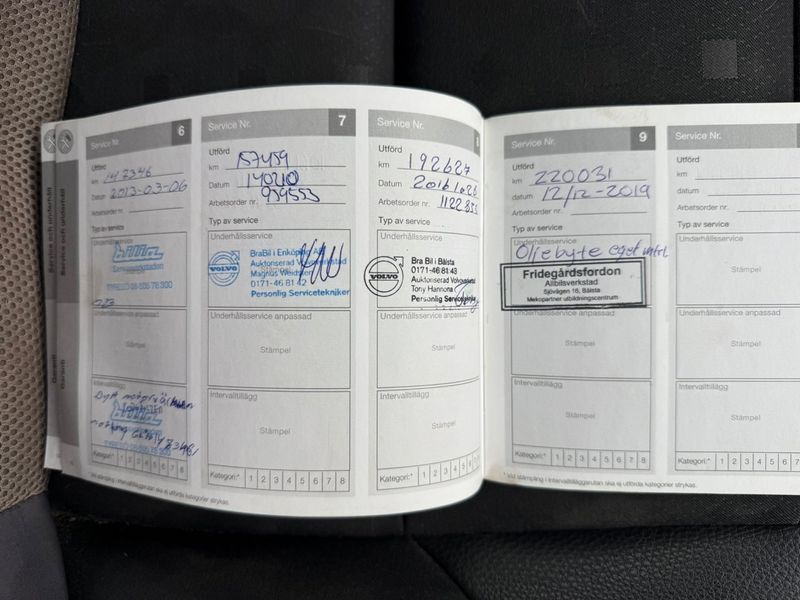 Service och underhåll
Garanti
Service och underhåll
Garanti
Service Nr. 6
Utförd
km 147346
Datum 2013-03-06
Arbetsorder nr.
Typ av service
Underhållsservice
TYRESÖ 08-505 78 300
Underhållsservice anpassad
Stämpel
Intervalltillägg
Kategori:* 1 2 3 4 5 6 7 8
Service Nr. 7
Utförd
km 157459
Datum 140210
Arbetsorder nr. 959553
Typ av service
Underhållsservice
VOLVO
BraBil i Enköping AB
Auktoriserad Volvoverkstad
Magnus
0171-46 81 42
Personlig Servicetekniker
Underhållsservice anpassad
Stämpel
Intervalltillägg
Stämpel
Kategori:* 1 2 3 4 5 6 7 8
Service Nr.
Utförd
km 192627
Datum 2016
Arbetsorder nr.
Typ av service
Underhållsservice
VOLVO
Bra Bil i Bålsta
0171-46 81 43
Auktoriserad
Tony Hannona
Personlig
Underhållsservice anpassad
Stämpel
Intervalltillägg
Stämpel
Kategori:* 1 2 3 4 5 6
* Vid stämpling i Intervalltilläggsrutan ska ej utförda kategorier strykas.
Service Nr. 9
Utförd
km 220031
Datum 12/12-2019
Arbetsorder nr.
Typ av service
Underhållsservice
Oljebyte eget
Fridegårdsfordon
Allbilsverkstad
Sjövägen 16, Bålsta
Mekopartner utbildningscentrum
Underhållsservice anpassad
Stämpel
Intervalltillägg
Stämpel
Kategori:* 1 2 3 4 5 6 7 8
* Vid stämpling i Intervalltilläggsrutan ska ej utförda kategorier strykas.
Service Nr.
Utförd
km
datum
Arbetsorder nr.
Typ av service
Underhållsservice
Stämpel
Underhållsservice anpassad
Stämpel
Intervalltillägg
Stämpel
Kategori:* 1 2 3 4 5